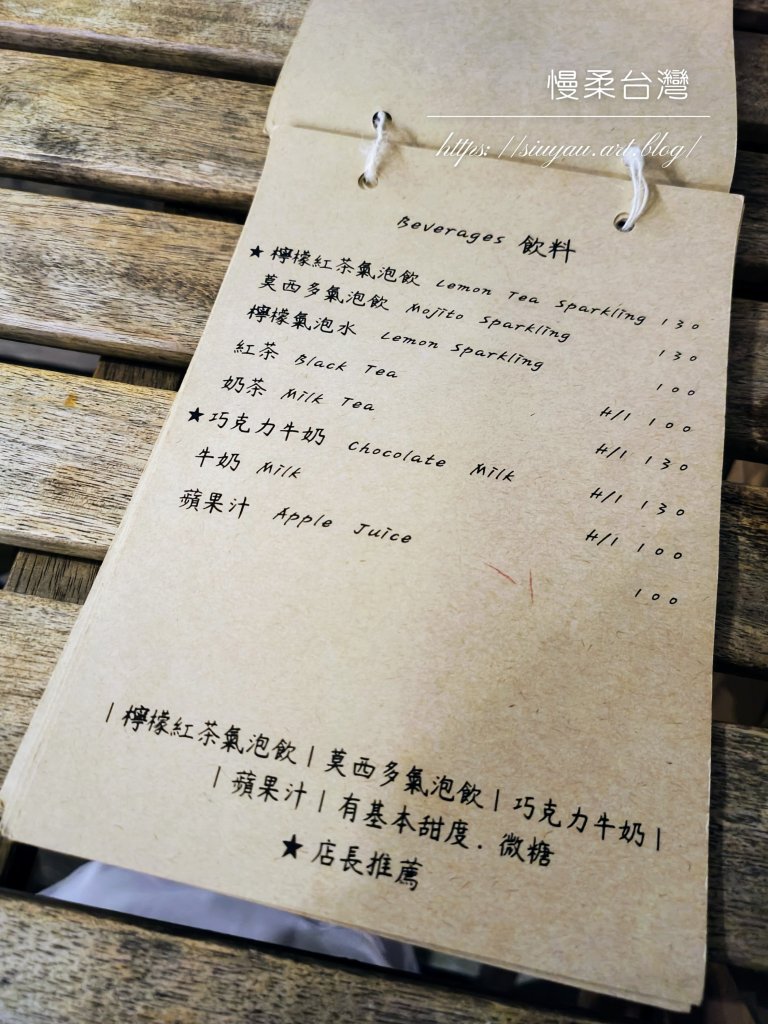 慢柔台灣
https://siuyau.art.blog/
Beverages 飲料
★檸檬紅茶氣泡飲 Lemon Tea Sparkling 130
莫西多氣泡飲 Mojito Sparkling 130
檸檬氣泡水 Lemon Sparkling 100
紅茶 Black Tea H/I 100
奶茶 Milk Tea H/I 130
★巧克力牛奶 Chocolate Milk H/I 130
牛奶 Milk H/I 100
蘋果汁 Apple Juice 100
|檸檬紅茶氣泡飲|莫西多氣泡飲|巧克力牛奶|
|蘋果汁|有基本甜度.微糖
★店長推薦